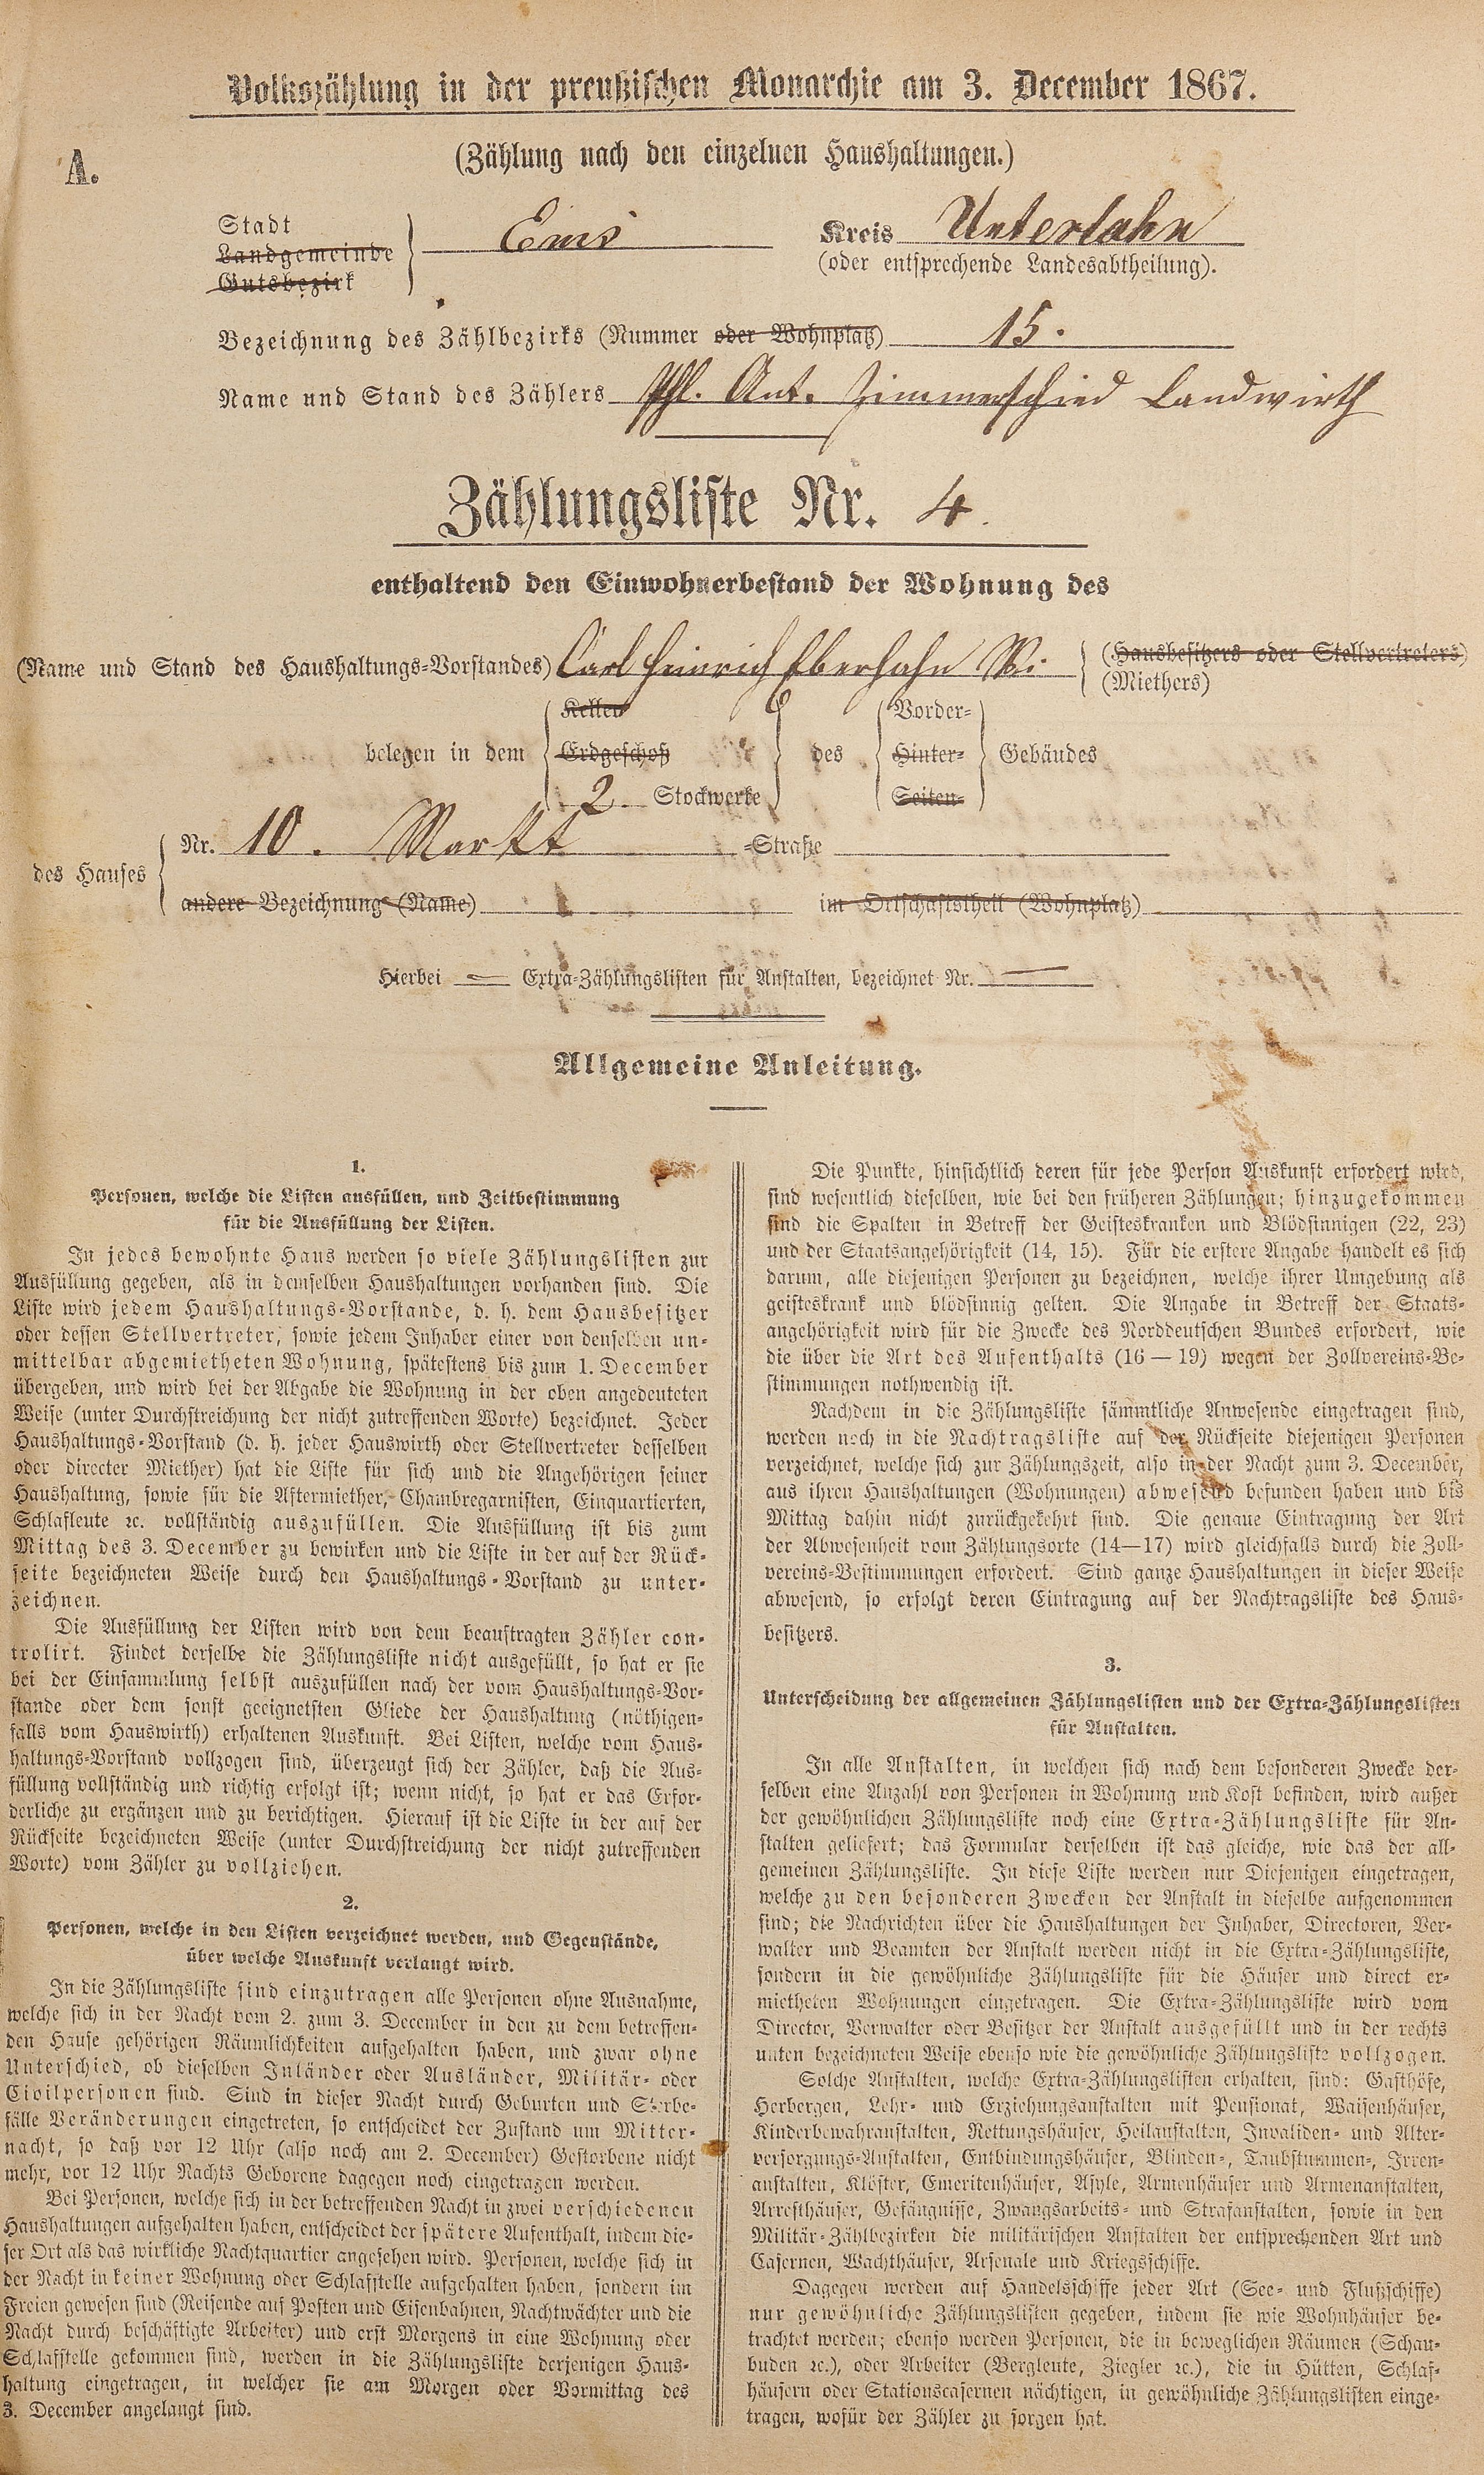 Volkszählung in der preußischen Monarchie am 3. December 1867.
A.
(Zählung nach den einzelnen Haushaltungen.)
Stadt
Landgemeinde
Gutsbezirk
Ems
Kreis Unterlahn
(oder entsprechende Landesabtheilung).
Bezeichnung des Zählbezirks (Nummer oder Wohnplatz) 15.
Name und Stand des Zählers Phl. Ant. Zimmerschied Landwirth
Zählungsliste Nr. 4.
enthaltend den Einwohnerbestand der Wohnung des
(Name und Stand des Haushaltungs-Vorstandes) Carl Heinrich Eberhahn
(Hausbesitzers oder Stellvertreters)
(Miethers)
belegen in dem
Keller
Erdgeschoß
2 Stockwerke
des
Vorder-
Hinter-
Seiten-
Gebäudes
des Hauses
Nr. 10. Markt -Straße
andere Bezeichnung (Name) im Ortschaftstheil (Wohnplatz)
Hierbei — Extra-Zählungslisten für Anstalten, bezeichnet Nr. —
Allgemeine Anleitung.
1.
Personen, welche die Listen ausfüllen, und Zeitbestimmung
für die Ausfüllung der Listen.
In jedes bewohnte Haus werden so viele Zählungslisten zur
Ausfüllung gegeben, als in demselben Haushaltungen vorhanden sind. Die
Liste wird jedem Haushaltungs-Vorstande, d. h. dem Hausbesitzer
oder dessen Stellvertreter, sowie jedem Inhaber einer von denselben un-
mittelbar abgemietheten Wohnung, spätestens bis zum 1. December
übergeben, und wird bei der Abgabe die Wohnung in der oben angedeuteten
Weise (unter Durchstreichung der nicht zutreffenden Worte) bezeichnet. Jeder
Haushaltungs-Vorstand (d. h. jeder Hauswirth oder Stellvertreter desselben
oder directer Miether) hat die Liste für sich und die Angehörigen seiner
Haushaltung, sowie für die Aftermiether, Chambregarnisten, Einquartierten,
Schlafleute ꝛc. vollständig auszufüllen. Die Ausfüllung ist bis zum
Mittag des 3. December zu bewirken und die Liste in der auf der Rück-
seite bezeichneten Weise durch den Haushaltungs-Vorstand zu unter-
zeichnen.
Die Ausfüllung der Listen wird von dem beauftragten Zähler con-
trolirt. Findet derselbe die Zählungsliste nicht ausgefüllt, so hat er sie
bei der Einsammlung selbst auszufüllen nach der vom Haushaltungs-Vor-
stande oder dem sonst geeignetsten Gliede der Haushaltung (nöthigen-
falls vom Hauswirth) erhaltenen Auskunft. Bei Listen, welche vom Haus-
haltungs-Vorstand vollzogen sind, überzeugt sich der Zähler, daß die Aus-
füllung vollständig und richtig erfolgt ist; wenn nicht, so hat er das Erfor-
derliche zu ergänzen und zu berichtigen. Hierauf ist die Liste in der auf der
Rückseite bezeichneten Weise (unter Durchstreichung der nicht zutreffenden
Worte) vom Zähler zu vollziehen.
2.
Personen, welche in den Listen verzeichnet werden, und Gegenstände,
über welche Auskunft verlangt wird.
In die Zählungsliste sind einzutragen alle Personen ohne Ausnahme,
welche sich in der Nacht vom 2. zum 3. December in den zu dem betreffen-
den Hause gehörigen Räumlichkeiten aufgehalten haben, und zwar ohne
Unterschied, ob dieselben Inländer oder Ausländer, Militär- oder
Civilpersonen sind. Sind in dieser Nacht durch Geburten und Sterbe-
fälle Veränderungen eingetreten, so entscheidet der Zustand um Mitter-
nacht, so daß vor 12 Uhr (also noch am 2. December) Gestorbene nicht
mehr, vor 12 Uhr Nachts Geborene dagegen noch eingetragen werden.
Bei Personen, welche sich in der betreffenden Nacht in zwei verschiedenen
Haushaltungen aufgehalten haben, entscheidet der spätere Aufenthalt, indem die-
ser Ort als das wirkliche Nachtquartier angesehen wird. Personen, welche sich in
der Nacht in keiner Wohnung oder Schlafstelle aufgehalten haben, sondern im
Freien gewesen sind (Reisende auf Posten und Eisenbahnen, Nachtwächter und die
Nacht durch beschäftigte Arbeiter) und erst Morgens in eine Wohnung oder
Schlafstelle gekommen sind, werden in die Zählungsliste derjenigen Haus-
haltung eingetragen, in welcher sie am Morgen oder Vormittag des
3. December angelangt sind.
Die Punkte, hinsichtlich deren für jede Person Auskunft erfordert wird,
sind wesentlich dieselben, wie bei den früheren Zählungen; hinzugekommen
sind die Spalten in Betreff der Geisteskranken und Blödsinnigen (22, 23)
und der Staatsangehörigkeit (14, 15). Für die erstere Angabe handelt es sich
darum, alle diejenigen Personen zu bezeichnen, welche ihrer Umgebung als
geisteskrank und blödsinnig gelten. Die Angabe in Betreff der Staats-
angehörigkeit wird für die Zwecke des Norddeutschen Bundes erfordert, wie
die über die Art des Aufenthalts (16—19) wegen der Zollvereins-Be-
stimmungen nothwendig ist.
Nachdem in die Zählungsliste sämmtliche Anwesende eingetragen sind,
werden noch in die Nachtragsliste auf der Rückseite diejenigen Personen
verzeichnet, welche sich zur Zählungszeit, also in der Nacht zum 3. December,
aus ihren Haushaltungen (Wohnungen) abwesend befunden haben und bis
Mittag dahin nicht zurückgekehrt sind. Die genaue Eintragung der Art
der Abwesenheit vom Zählungsorte (14—17) wird gleichfalls durch die Zoll-
vereins-Bestimmungen erfordert. Sind ganze Haushaltungen in dieser Weise
abwesend, so erfolgt deren Eintragung auf der Nachtragsliste des Haus-
besitzers.
3.
Unterscheidung der allgemeinen Zählungslisten und der Extra-Zählungslisten
für Anstalten.
In alle Anstalten, in welchen sich nach dem besonderen Zwecke der-
selben eine Anzahl von Personen in Wohnung und Kost befinden, wird außer
der gewöhnlichen Zählungsliste noch eine Extra-Zählungsliste für An-
stalten geliefert; das Formular derselben ist das gleiche, wie das der all-
gemeinen Zählungsliste. In diese Liste werden nur Diejenigen eingetragen,
welche zu den besonderen Zwecken der Anstalt in dieselbe aufgenommen
sind; die Nachrichten über die Haushaltungen der Inhaber, Directoren, Ver-
walter und Beamten der Anstalt werden nicht in die Extra-Zählungsliste,
sondern in die gewöhnliche Zählungsliste für die Häuser und direct er-
mietheten Wohnungen eingetragen. Die Extra-Zählungsliste wird vom
Director, Verwalter oder Besitzer der Anstalt ausgefüllt und in der rechts
unten bezeichneten Weise ebenso wie die gewöhnliche Zählungsliste vollzogen.
Solche Anstalten, welche Extra-Zählungslisten erhalten, sind: Gasthöfe,
Herbergen, Lehr- und Erziehungsanstalten mit Pensionat, Waisenhäuser,
Kinderbewahranstalten, Rettungshäuser, Heilanstalten, Invaliden- und Alter-
versorgungs-Anstalten, Entbindungshäuser, Blinden-, Taubstummen-, Irren-
anstalten, Klöster, Emeritenhäuser, Asyle, Armenhäuser und Armenanstalten,
Arresthäuser, Gefängnisse, Zwangsarbeits- und Strafanstalten, sowie in den
Militär-Zählbezirken die militärischen Anstalten der entsprechenden Art und
Casernen, Wachthäuser, Arsenale und Kriegsschiffe.
Dagegen werden auf Handelsschiffe jeder Art (See- und Flußschiffe)
nur gewöhnliche Zählungslisten gegeben, indem sie wie Wohnhäuser be-
trachtet werden; ebenso werden Personen, die in beweglichen Räumen (Schau-
buden ꝛc.), oder Arbeiter (Bergleute, Ziegler ꝛc.), die in Hütten, Schlaf-
häusern oder Stationscasernen nächtigen, in gewöhnliche Zählungslisten einge-
tragen, wofür der Zähler zu sorgen hat.